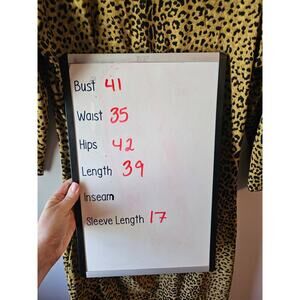 Bust 41
Waist 35
Hips 42
Length 39
Inseam
Sleeve Length 17